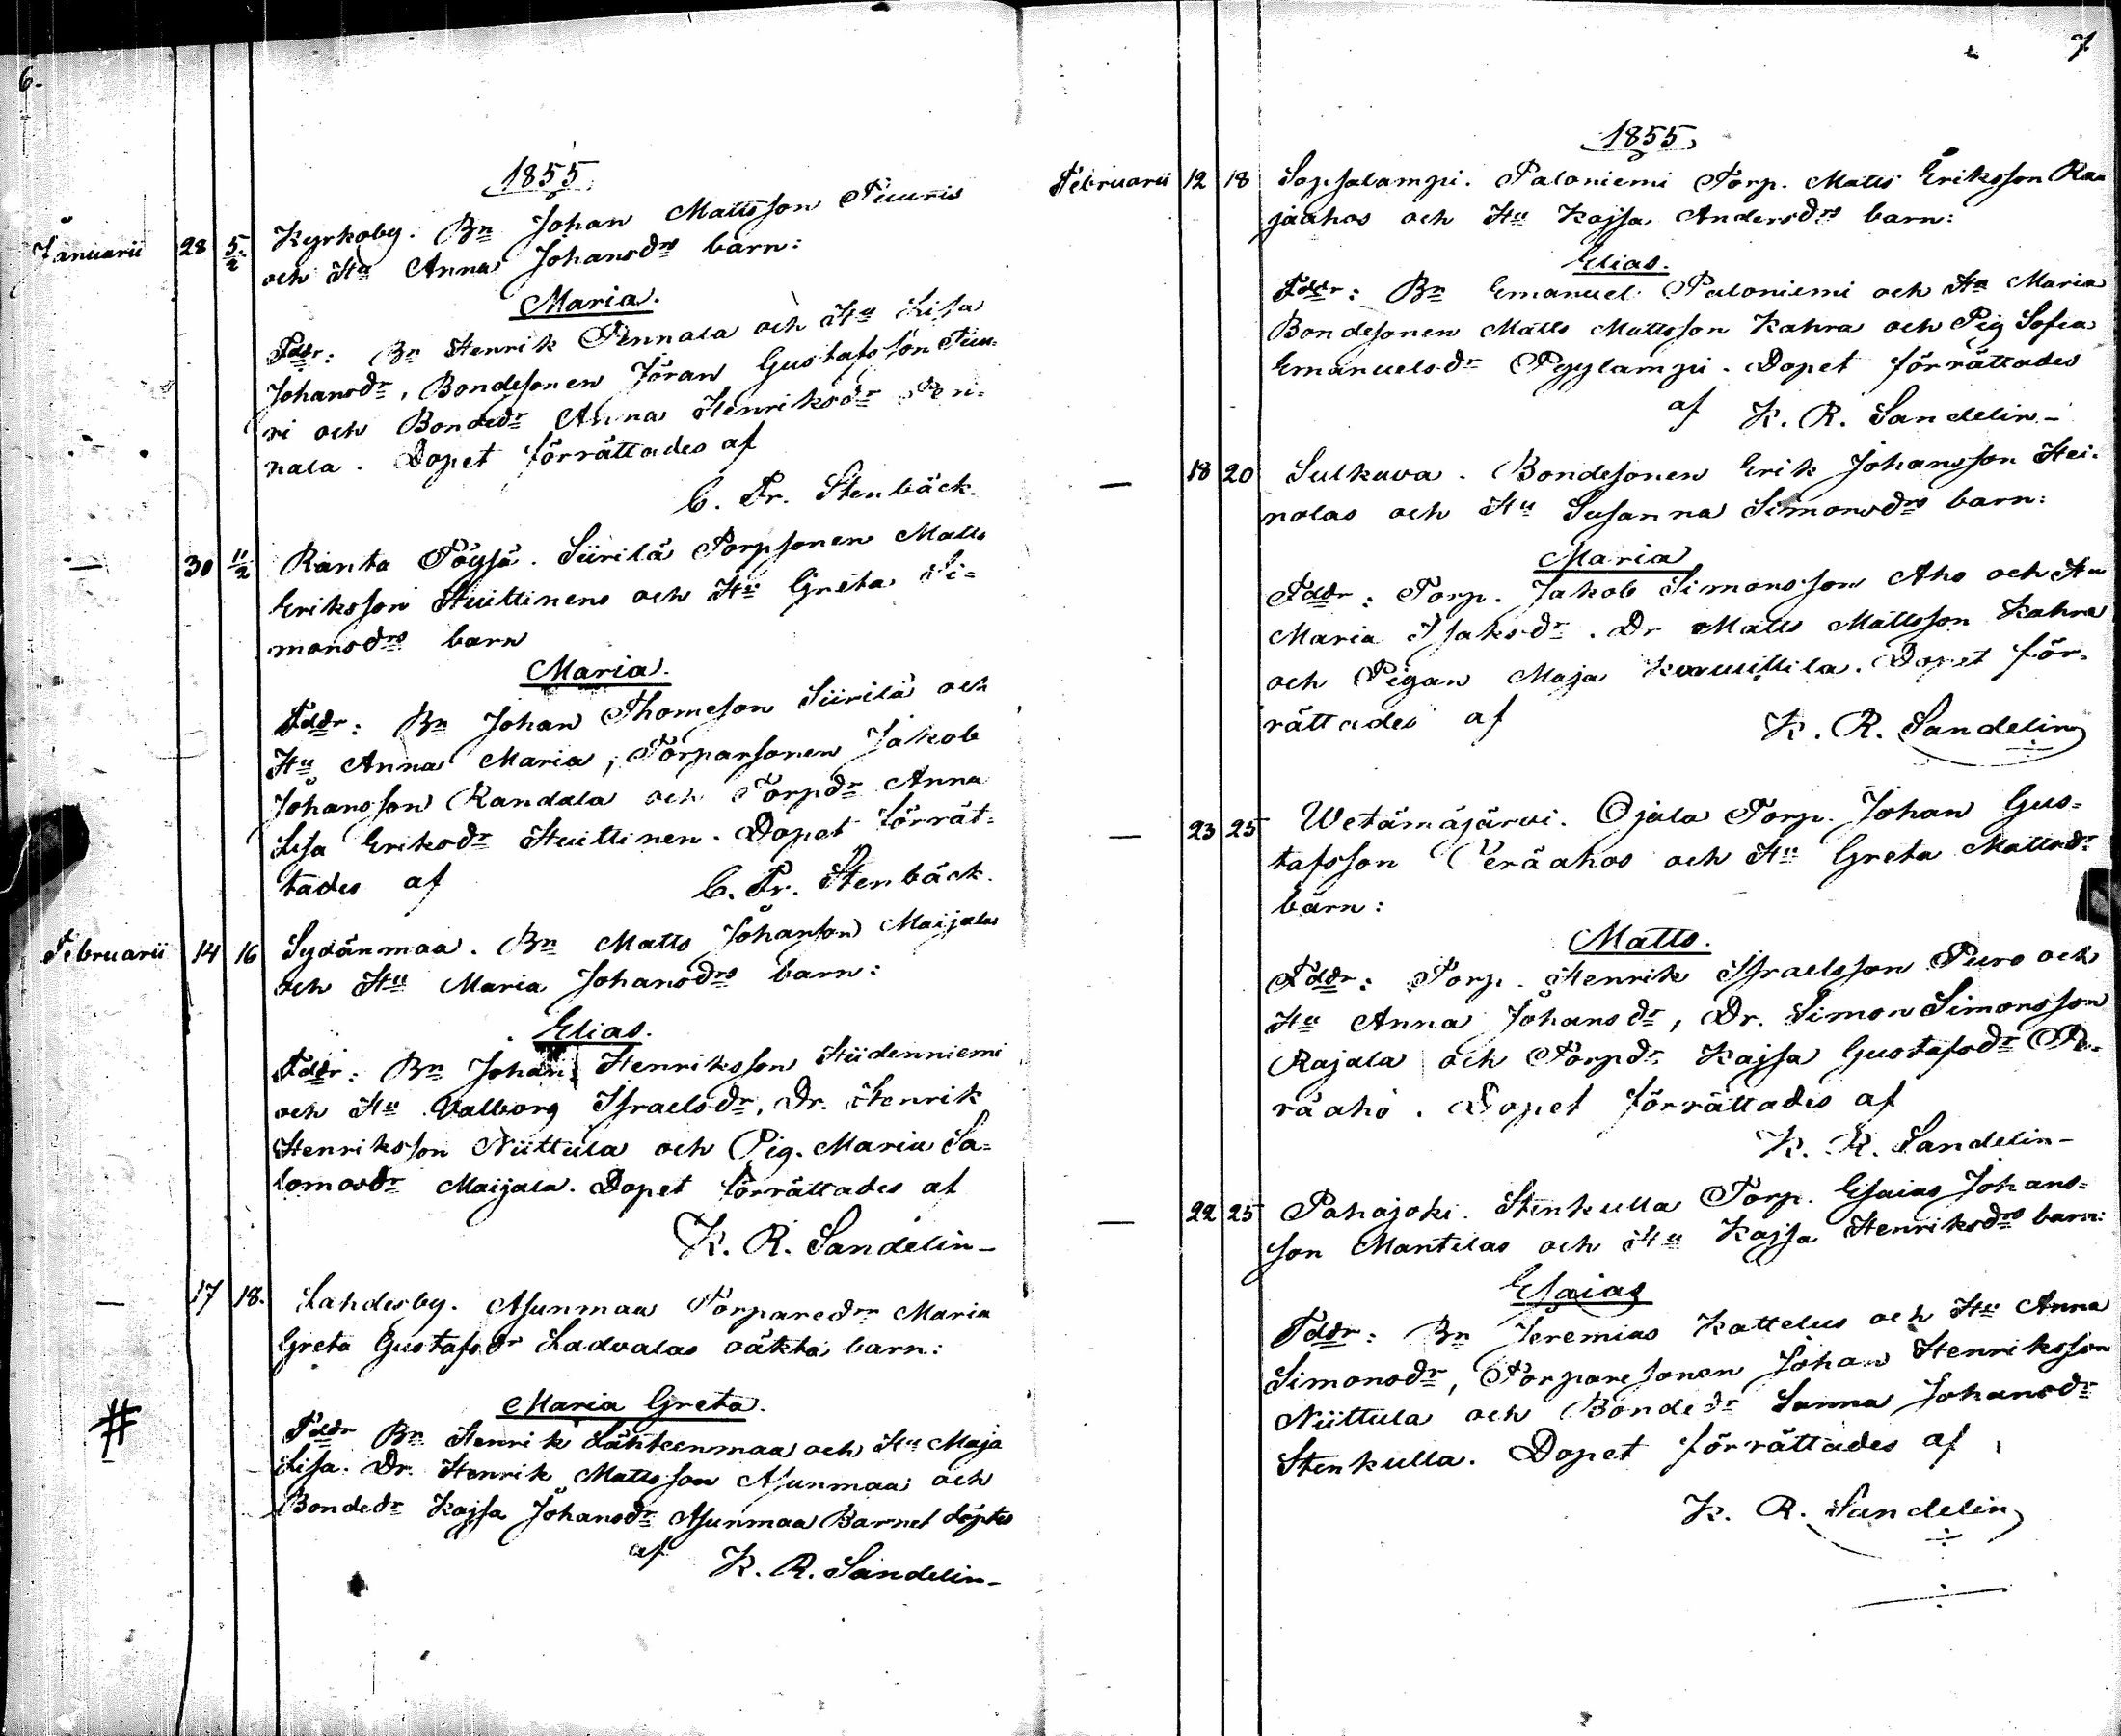 6.
1855
Januarii 28 5/2 Kyrkoby. Bn Johan Mattsson Tuuris
och Hu Anna Johansdrs barn:
Maria.
Fddr: Bn Henrik Pennala och Hu Lisa
Johansdr, Bondesonen Jöran Gustafsson Tuu-
ri och Bondedr Anna Henriksdr Pen-
nala. Dopet förrättades af
C. Fr. Stenbäck.
— 30 11/2 Ranta Töysä. Siirilä Torpsonen Matts
Eriksson Huittinens och Hu Greta Si-
monsdrs barn
Maria.
Fddr: Bn Johan Thomeson Siirilä och
Hu Anna Maria, Torparsonen Jakob
Johansson Randala och Torpdr Anna
Lisa Eriksdr Huittinen. Dopet förrät-
tades af C. Fr. Stenbäck.
Februarii 14 16 Sydänmaa. Bn Matts Johanson Maijalas
och Hu Maria Johansdrs barn:
Elias.
Fddr: Bn Johan Henriksson Hiidenniemi
och Hu Valborg Israelsdr, Dr. Henrik
Henriksson Niittula och Pig. Maria Sa-
lomosdr Maijala. Dopet förrättades af
K. R. Sandelin-
— 17 18. Lahdesby. Asunmaa Torparedr Maria
Greta Gustafsdr Ladvalas oäkta barn:
Maria Greta.
#
Fddr Bn Henrik Lähteenmaa och Hu Maja
Lisa. Dr. Henrik Mattsson Asunmaa och
Bondedr Kajsa Johansdr Asunmaa Barnet döptes
af K. R. Sandelin-
7
1855
Februarii 12 18 Sopsalampi. Paloniemi Torp. Matts Eriksson Raa
jaahos och Hu Kajsa Andersdrs barn:
Elias.
Fddr: Bn Emanuel Paloniemi och Hu Maria
Bondesonen Matts Mattsson Kahra och Pig Sofia
Emanuelsdr Pyylampi. Dopet förrättades
af K. R. Sandelin-
— 18 20 Sulkava. Bondesonen Erik Johansson Hei-
nolas och Hu Susanna Simonsdrs barn:
Maria
Fddr: Torp. Jakob Simonsson Aho och Hu
Maria Isaksdr. Dr Matts Mattsson Kahra
och Pigan Maja. Dopet för-
rättades af K. R. Sandelin
— 23 25 Wetämäjärvi. Ojala Torp. Johan Gus-
tafsson Peräahos och Hu Greta Mattsdr
barn:
Matts.
Fddr: Torp. Henrik Israelsson Puro och
Hu Anna Johansdr, Dr. Simon Simonsson
Rajala och Torpdr. Kajsa Gustafsdr Pe-
räaho. Dopet förrättades af
K. R. Sandelin-
— 22 25 Pahajoki. Stenkulla Torp. Esaias Johans-
son Mantilas och Hu Kajsa Henriksdrs barn:
Esaias
Fddr: Bn Jeremias Kattelus och Hu Anna
Simonsdr, Torparesonen Johan Henriksson
Niittula och Bondedr Sanna Johansdr
Stenkulla. Dopet förrättades af
K. R. Sandelin